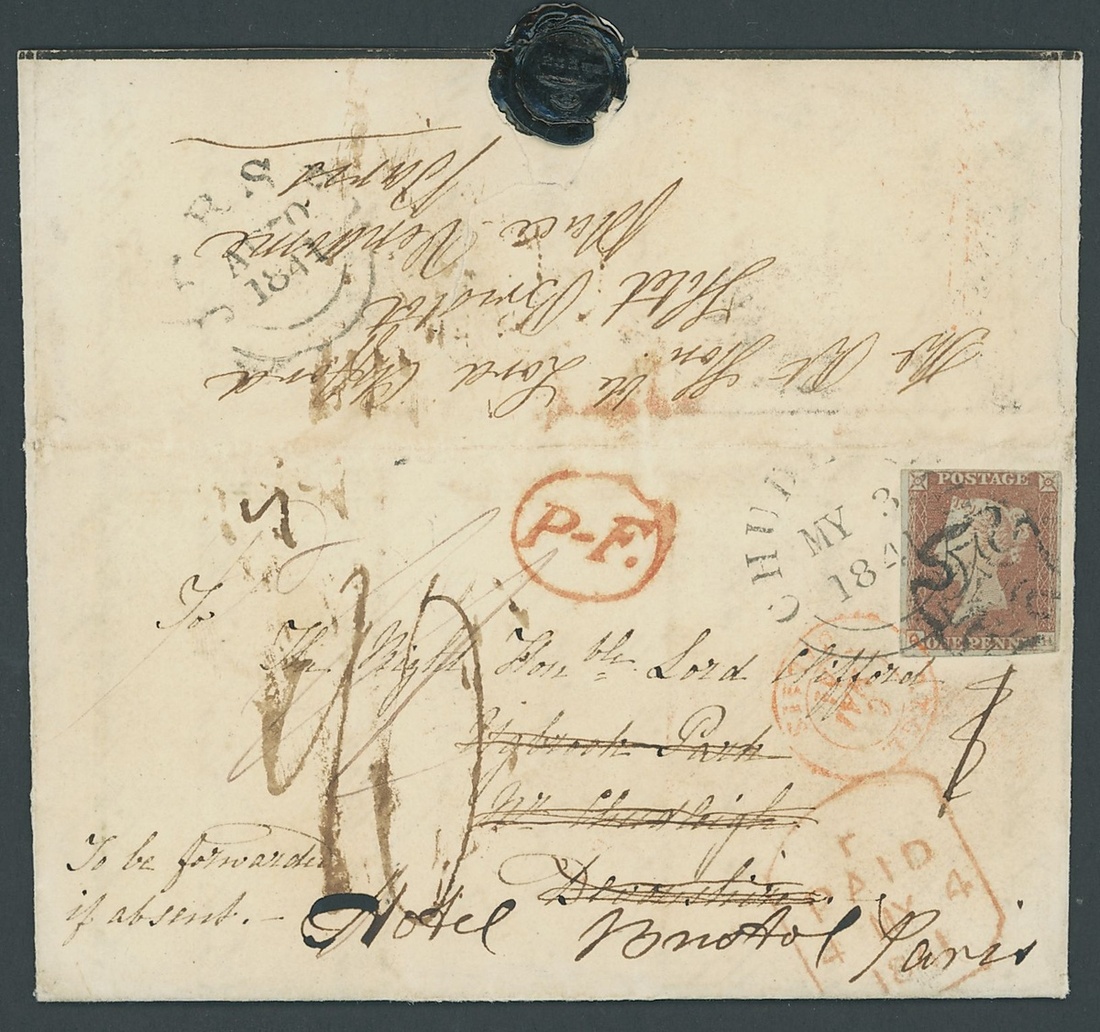 The Rt Hon ble Lord Clifford
Hotel Bristol
Place Vendome
Paris
RS
1841
P-F.
CHUD
MY 3
184
POSTAGE
ONE PENNY
To
The Right Honble Lord Clifford
Park
Nr Chudleigh
Devonshire.
To be forwarded
if absent.-
Hotel Bristol Paris
PAID
4 MY 4
1841